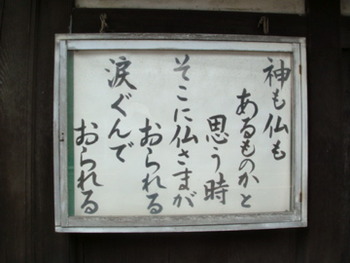 神も仏も
あるものかと
思う時
そこに仏さまが
おられる
涙ぐんで
おられる